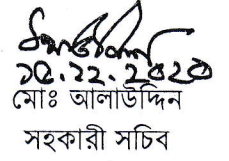 ১৫.১২.২০২০
মোঃ আলাউদ্দিন
সহকারী সচিব